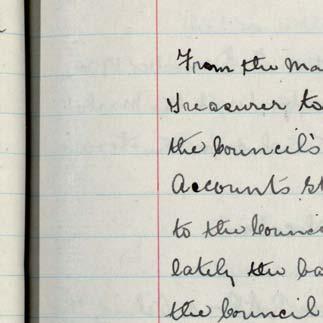 From the Ma
Treasurer to
the Council's
Accounts St
to the Counci
lately the ba
the Council